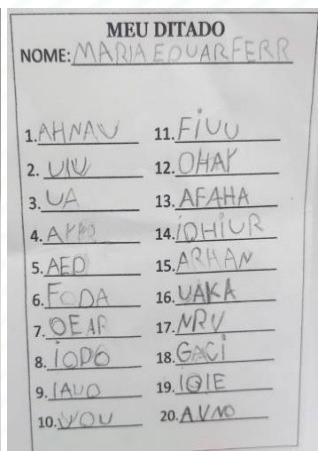 MEU DITADO
NOME: MARIA EDUARFERR
1. AHNAU
2. UIU
3. UA
4.
5. AED
6. FODA
7. OEAR
8. IOPO
9. IAUO
10. VOU
11. FiUU
12. OHAY
13. AFAHA
14. iOHiUR
15. ARHAN
16. UAKA
17. NRU
18. GACi
19. IQIE
20. AVNO